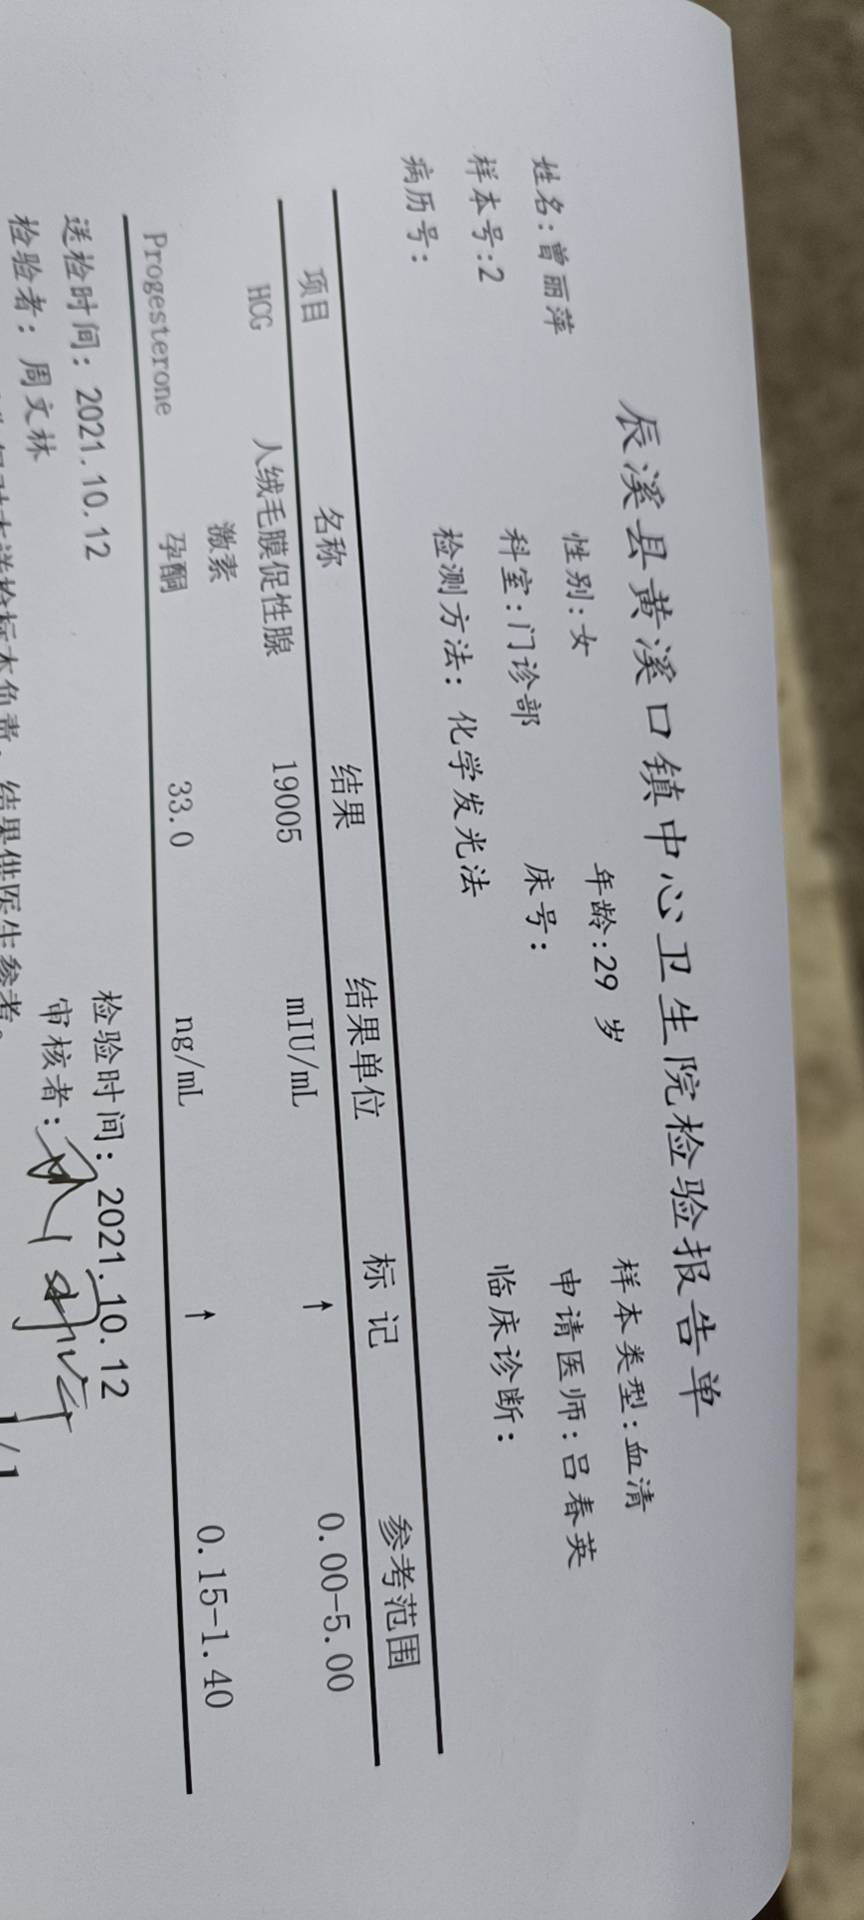 辰溪县黄溪口镇中心卫生院检验报告单
姓名:曾丽萍 性别:女 年龄:29 岁 样本类型:血清
样本号:2 科室:门诊部 床号: 申请医师:吕春英
病历号: 检测方法: 化学发光法 临床诊断:
项目 名称 结果 结果单位 标 记 参考范围
HCG 人绒毛膜促性腺 19005 mIU/mL ↑ 0.00-5.00
激素
Progesterone 孕酮 33.0 ng/mL ↑ 0.15-1.40
送检时间: 2021.10.12 检验时间: 2021.10.12
检验者: 周文林 审核者:
对本送检标本负责, 结果供医生参考。
1/1